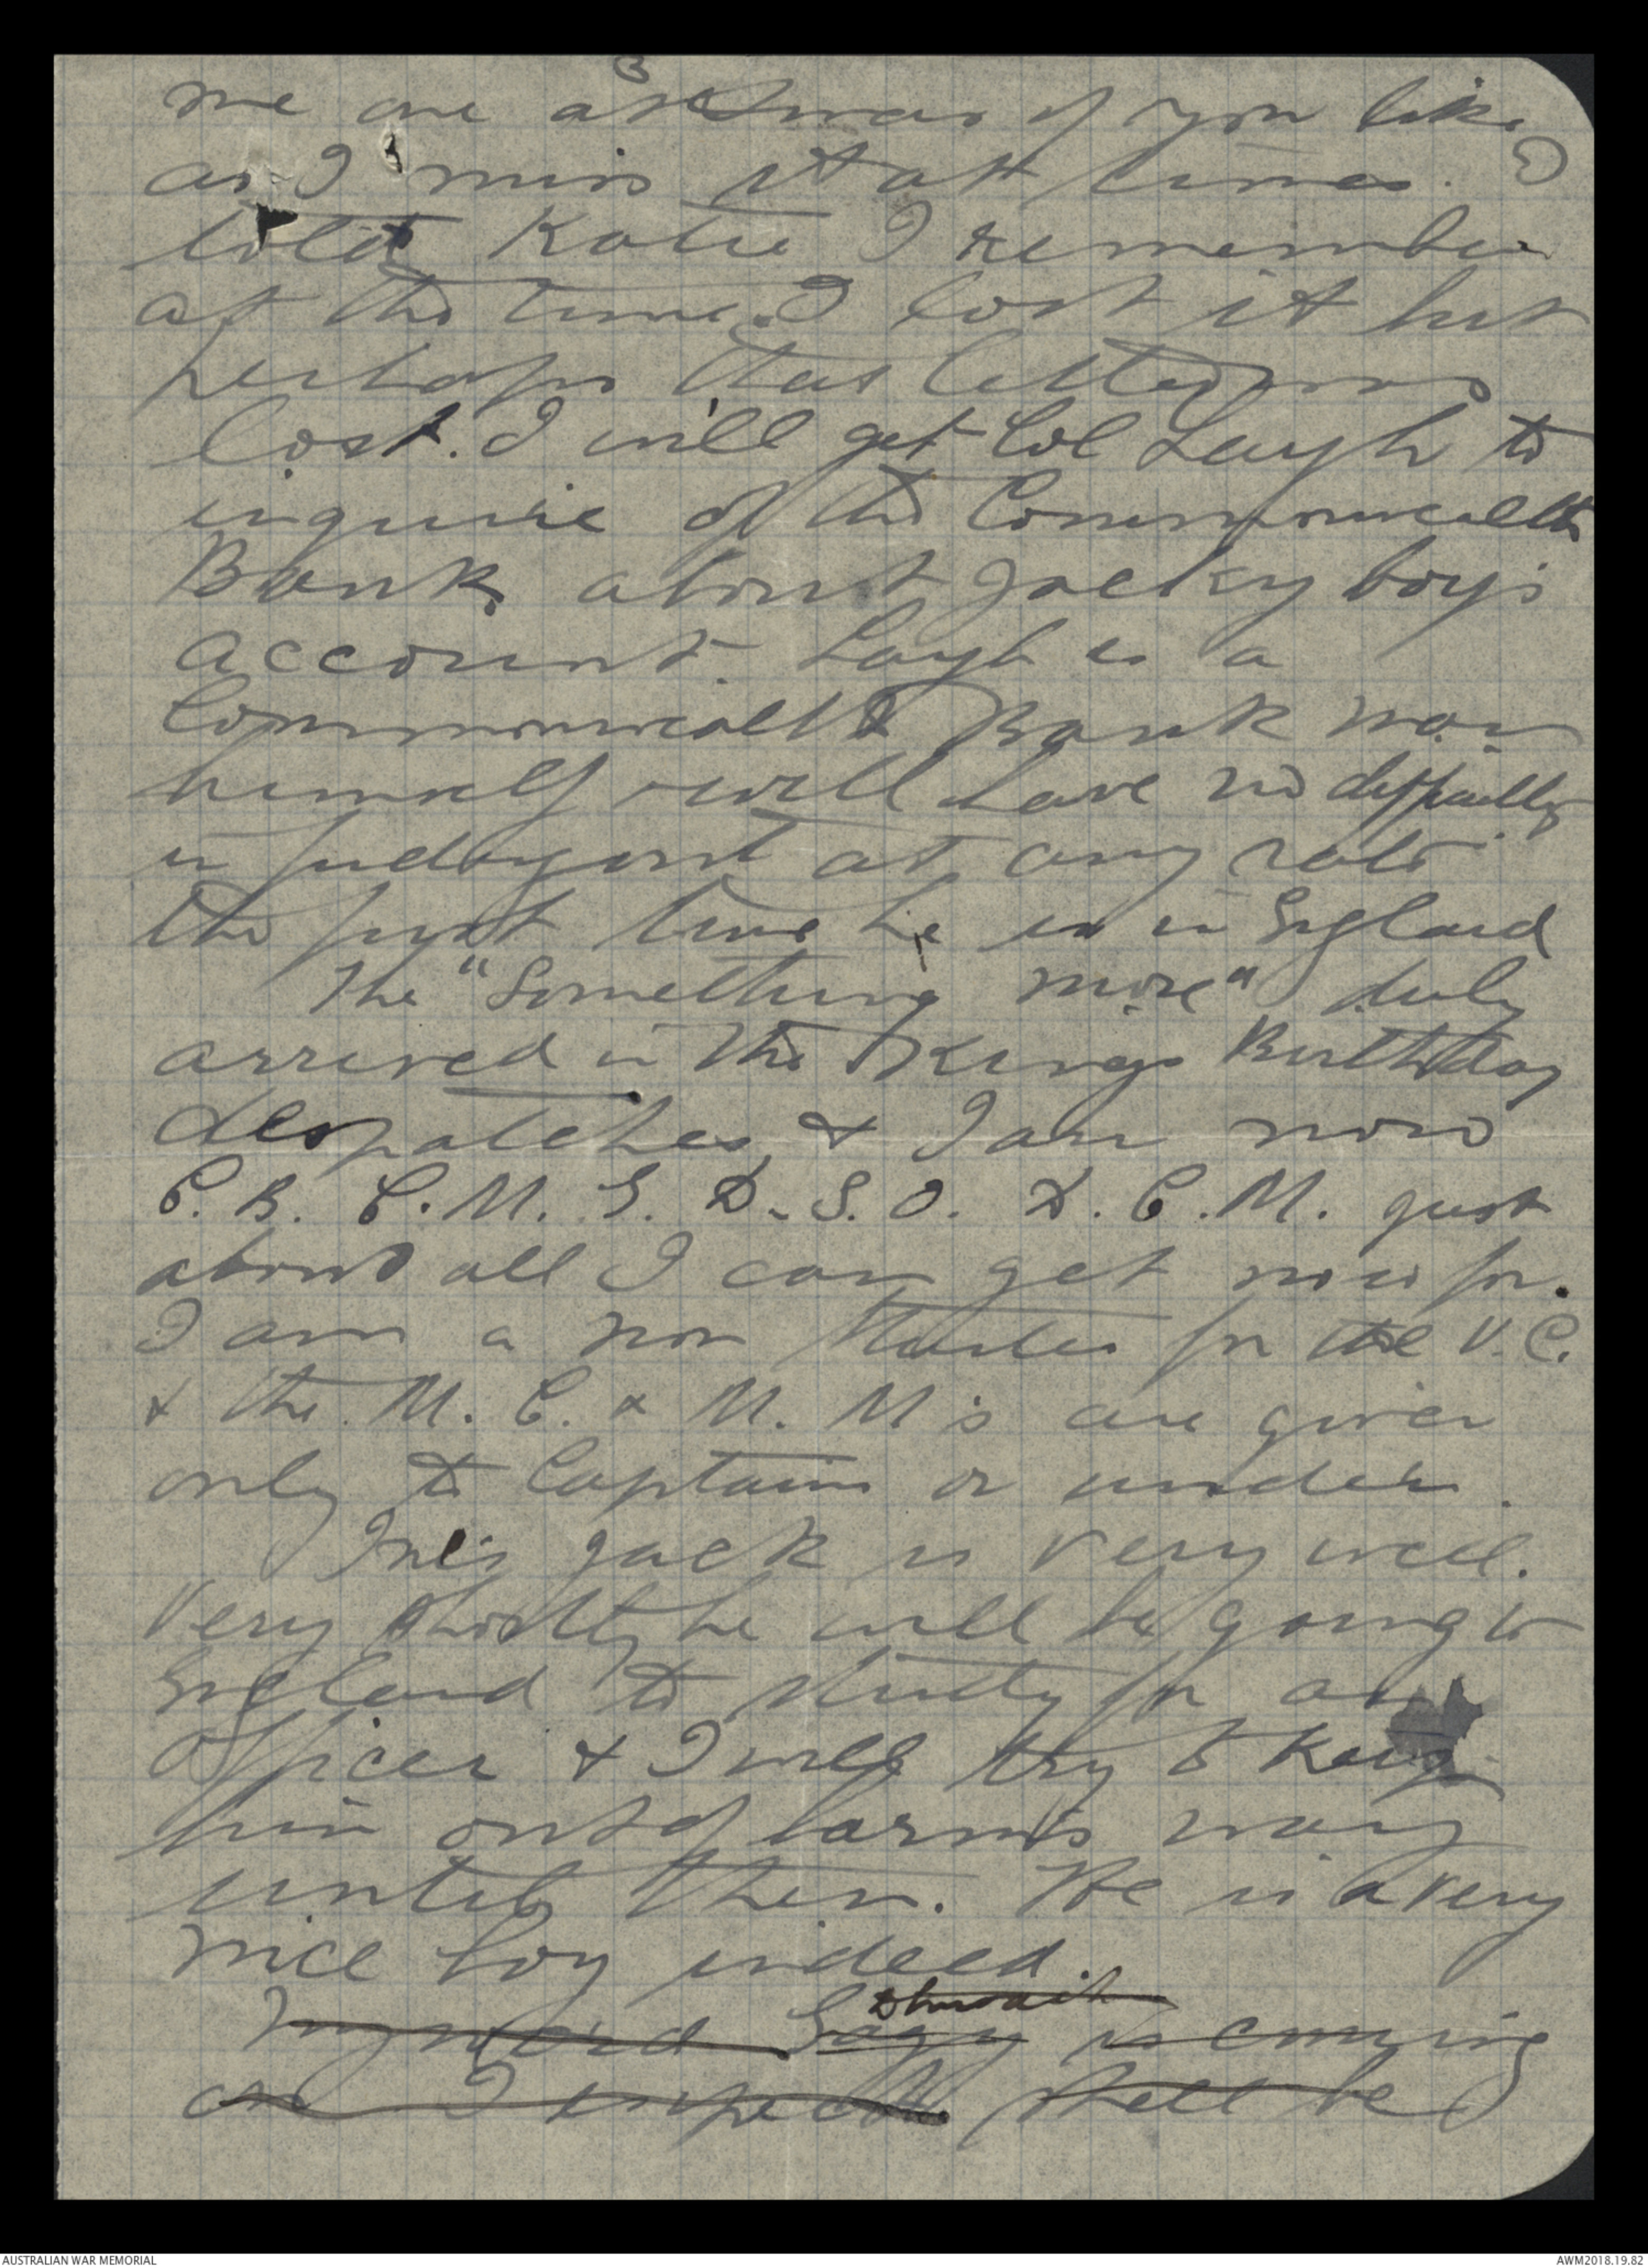 3
me one at Xmas if you like
as I miss it at times. I
told Katie I remember
at the time I lost it but
perhaps that letter was
lost. I will get Col Leigh to
inquire of the Commonwealth
Bank about Jacky boy's
account. Leigh is a
Commonwealth Bank man
himself & will have no difficulty
in finding out at any rate
the first time he is in England
The "Something more" duly
arrived in the Kings Birthday
despatches & I am now
C. B. C. M. G. D. S. O. D. C. M. just
about all I can get now for.
I am a non starter for the V. C.
& the M. C. & M. M's are given
only to Captains or under.
Jack is very well.
Very shortly he will be going to
England to study for an
Officer & I will try to keep
him out of harms way
until then. He is a very
nice boy indeed.
is coming
on I expect shall be
AUSTRALIAN WAR MEMORIAL
AWM2018.19.82